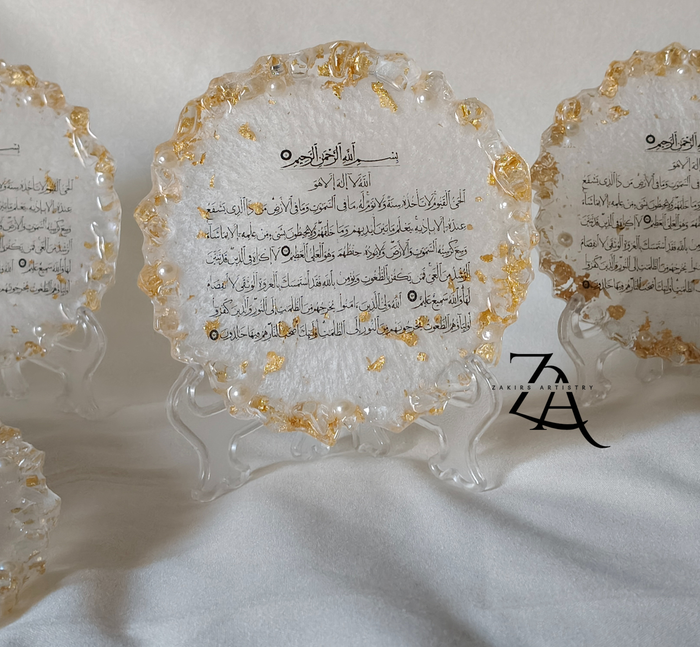 بِسْمِ اللهِ الرَّحْمٰنِ الرَّحِيمِ
اللهُ لَا إِلٰهَ إِلَّا هُوَ
الْحَيُّ الْقَيُّومُ لَا تَأْخُذُهُ سِنَةٌ وَلَا نَوْمٌ لَهُ مَا فِي السَّمٰوٰتِ وَمَا فِي الْأَرْضِ مَنْ ذَا الَّذِي يَشْفَعُ
عِنْدَهُ إِلَّا بِإِذْنِهِ يَعْلَمُ مَا بَيْنَ أَيْدِيهِمْ وَمَا خَلْفَهُمْ وَلَا يُحِيطُونَ بِشَيْءٍ مِنْ عِلْمِهِ إِلَّا بِمَا شَاءَ
وَسِعَ كُرْسِيُّهُ السَّمٰوٰتِ وَالْأَرْضَ وَلَا يَئُودُهُ حِفْظُهُمَا وَهُوَ الْعَلِيُّ الْعَظِيمُ لَا إِكْرَاهَ فِي الدِّينِ قَدْ تَبَيَّنَ
الرُّشْدُ مِنَ الْغَيِّ فَمَنْ يَكْفُرْ بِالطّٰغُوتِ وَيُؤْمِنْ بِاللهِ فَقَدِ اسْتَمْسَكَ بِالْعُرْوَةِ الْوُثْقٰى لَا انْفِصَامَ
لَهَا وَاللهُ سَمِيعٌ عَلِيمٌ اللهُ وَلِيُّ الَّذِينَ ءَامَنُوا يُخْرِجُهُمْ مِنَ الظُّلُمٰتِ إِلَى النُّورِ وَالَّذِينَ كَفَرُوا
أَوْلِيَاؤُهُمُ الطّٰغُوتُ يُخْرِجُونَهُمْ مِنَ النُّورِ إِلَى الظُّلُمٰتِ أُولٰئِكَ أَصْحٰبُ النَّارِ هُمْ فِيهَا خٰلِدُونَ
ZA
ZAKIRS ARTISTRY